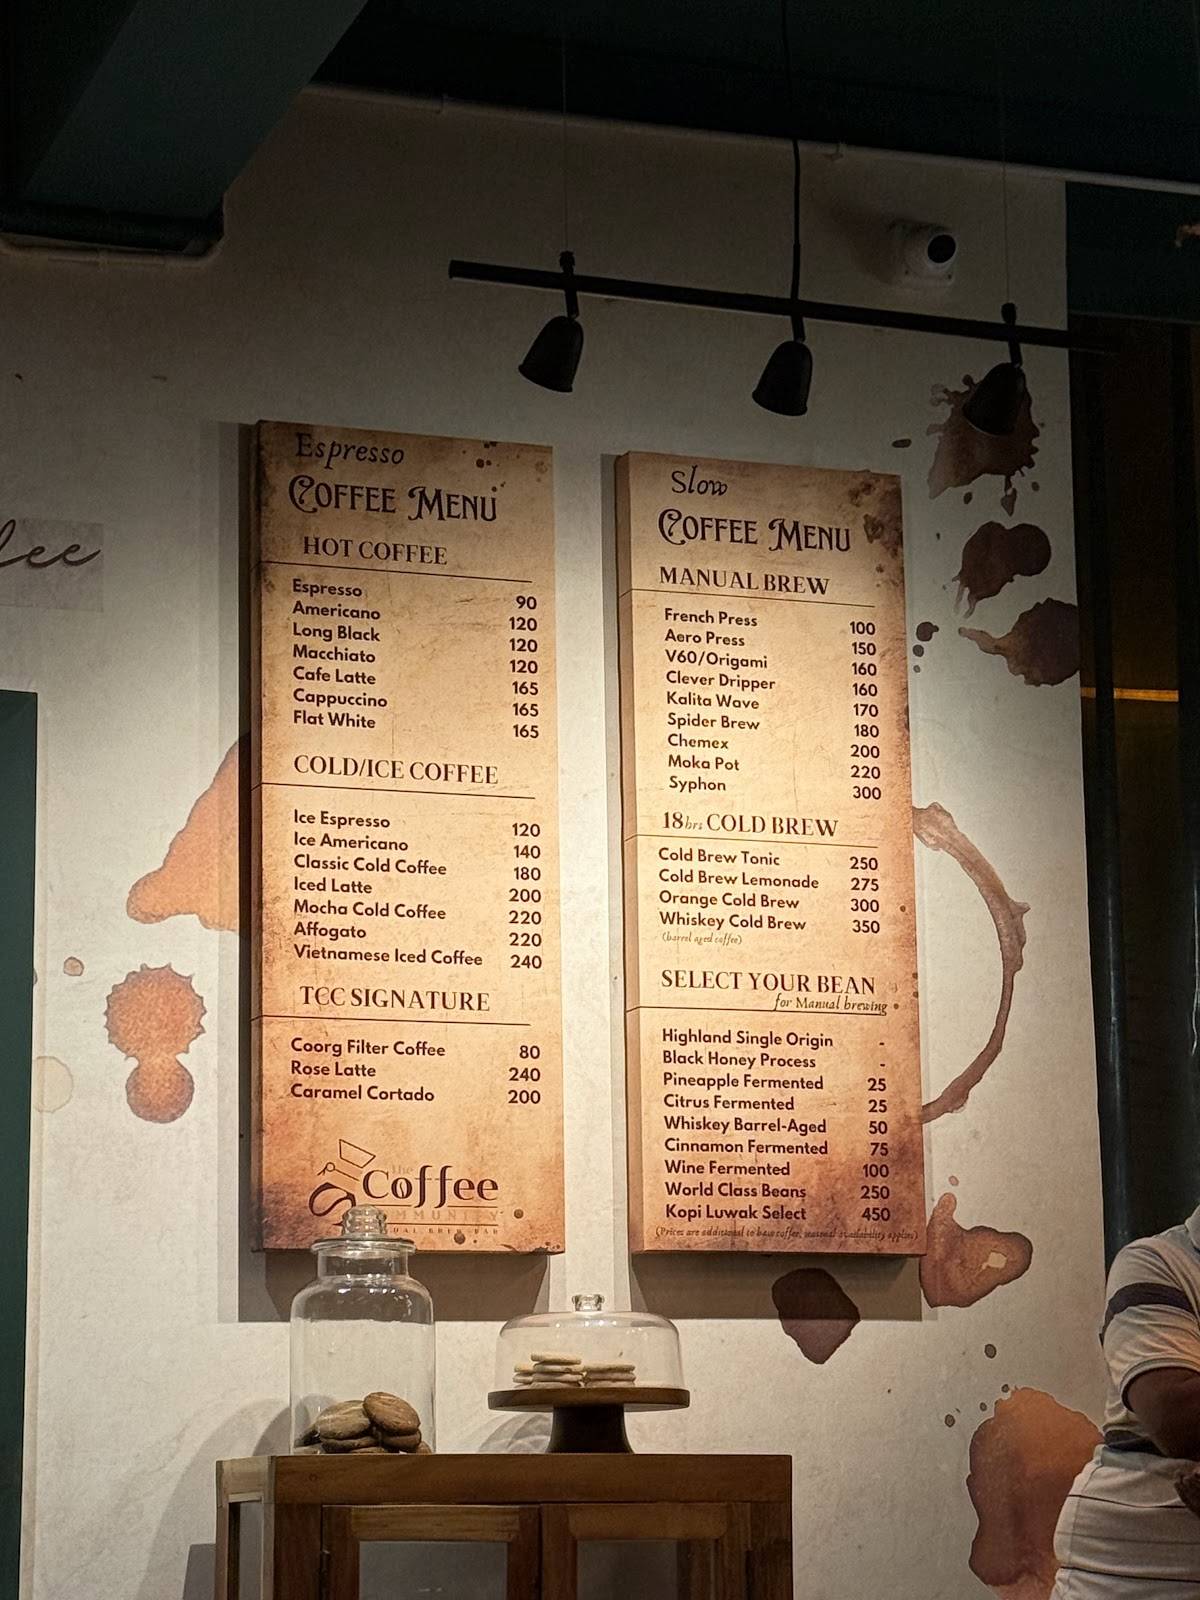 ffee
Espresso
COFFEE MENU
HOT COFFEE
Espresso 90
Americano 120
Long Black 120
Macchiato 120
Cafe Latte 165
Cappuccino 165
Flat White 165
COLD/ICE COFFEE
Ice Espresso 120
Ice Americano 140
Classic Cold Coffee 180
Iced Latte 200
Mocha Cold Coffee 220
Affogato 220
Vietnamese Iced Coffee 240
TCC SIGNATURE
Coorg Filter Coffee 80
Rose Latte 240
Caramel Cortado 200
the
Coffee
MMUNITY
BREW BAR
Slow
COFFEE MENU
MANUAL BREW
French Press 100
Aero Press 150
V60/Origami 160
Clever Dripper 160
Kalita Wave 170
Spider Brew 180
Chemex 200
Moka Pot 220
Syphon 300
18hrs COLD BREW
Cold Brew Tonic 250
Cold Brew Lemonade 275
Orange Cold Brew 300
Whiskey Cold Brew 350
(barrel aged coffee)
SELECT YOUR BEAN
for Manual brewing
Highland Single Origin -
Black Honey Process -
Pineapple Fermented 25
Citrus Fermented 25
Whiskey Barrel-Aged 50
Cinnamon Fermented 75
Wine Fermented 100
World Class Beans 250
Kopi Luwak Select 450
(Prices are additional to base coffee, seasonal availability applies)